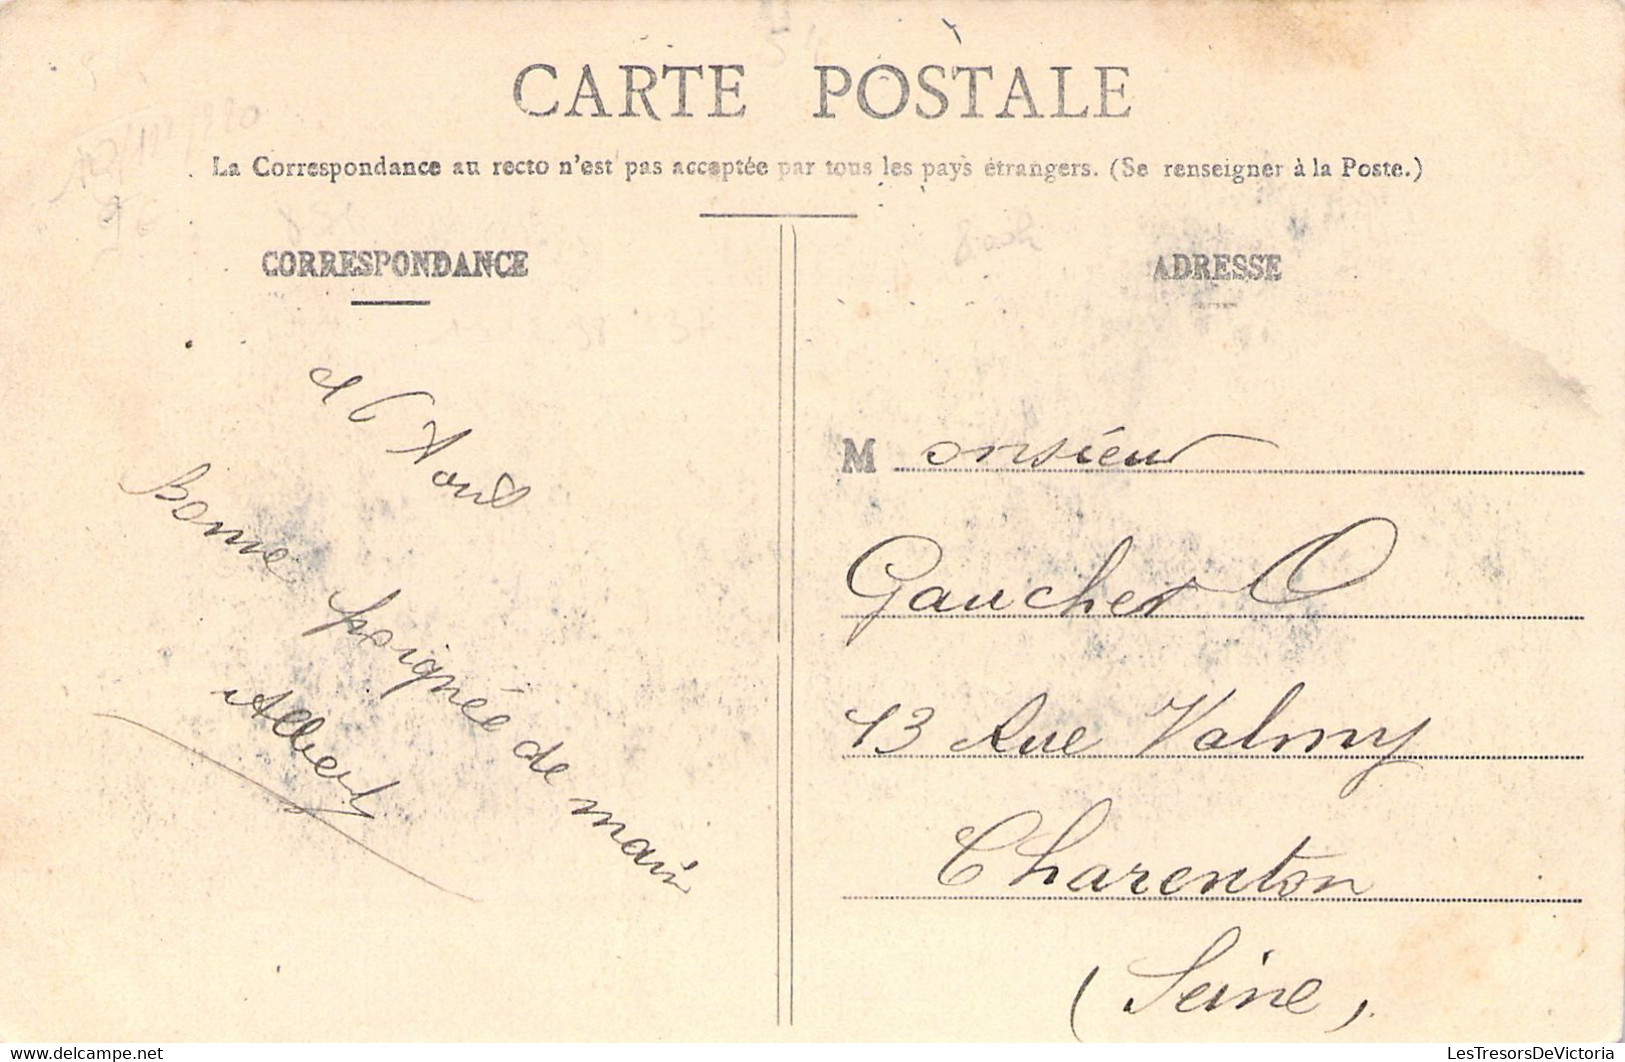 CARTE POSTALE
La Correspondance au recto n'est pas acceptée par tous les pays étrangers. (Se renseigner à la Poste.)
CORRESPONDANCE
Août
Bonne poignée de main
Albert
ADRESSE
Monsieur
Gaucher O
13 Rue Valmy
Charenton
(Seine)
LesTresorsDeVictoria